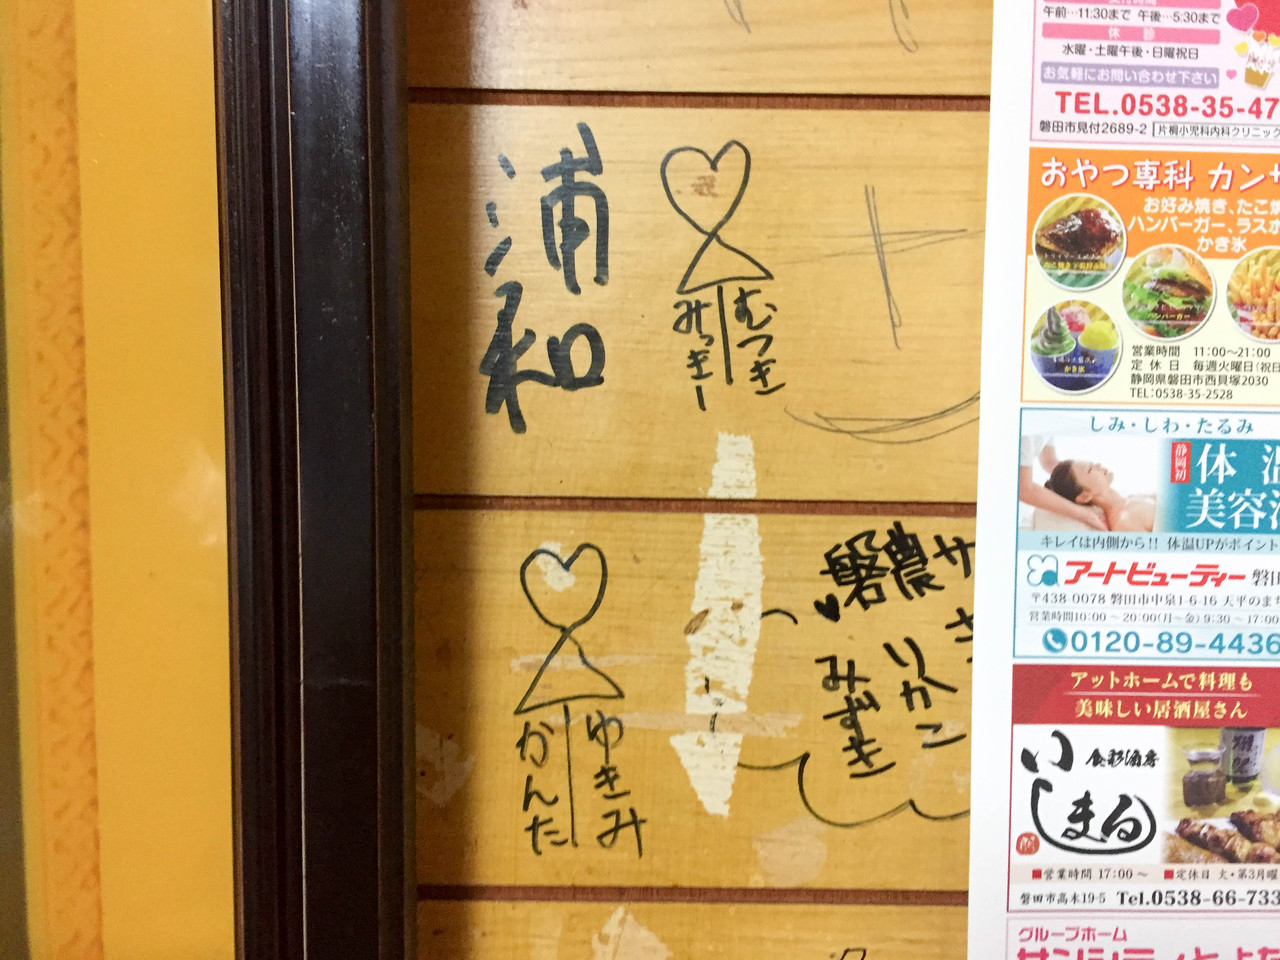 浦和
むつき
みっきー
ゆきみ
かんた
磐農
りかこ
みずき
午前…11:30まで 午後…5:30まで
休診
水曜・土曜午後・日曜祝日
お気軽にお問い合わせ下さい
TEL.0538-35-47
磐田市見付2689-2 片桐小児科内科クリニック
おやつ専科 カンサ
お好み焼き、たこ焼
ハンバーガー、ラスポ
かき氷
ハンバーガー
かき氷
営業時間 11:00〜21:00
定休日 毎週火曜日(祝日
静岡県磐田市西貝塚2030
TEL:0538-35-2528
しみ・しわ・たるみ
静岡初
体温
美容液
キレイは内側から!! 体温UPがポイント
アートビューティー 磐田
〒438-0078 磐田市中泉1-6-16 天平のまち
営業時間10:00〜20:00(月〜金) 9:30〜17:00
0120-89-4436
アットホームで料理も
美味しい居酒屋さん
食彩酒房
いしまる
■営業時間 17:00〜 ■定休日 火・第3月曜
磐田市高木19-5 Tel.0538-66-733
グループホーム